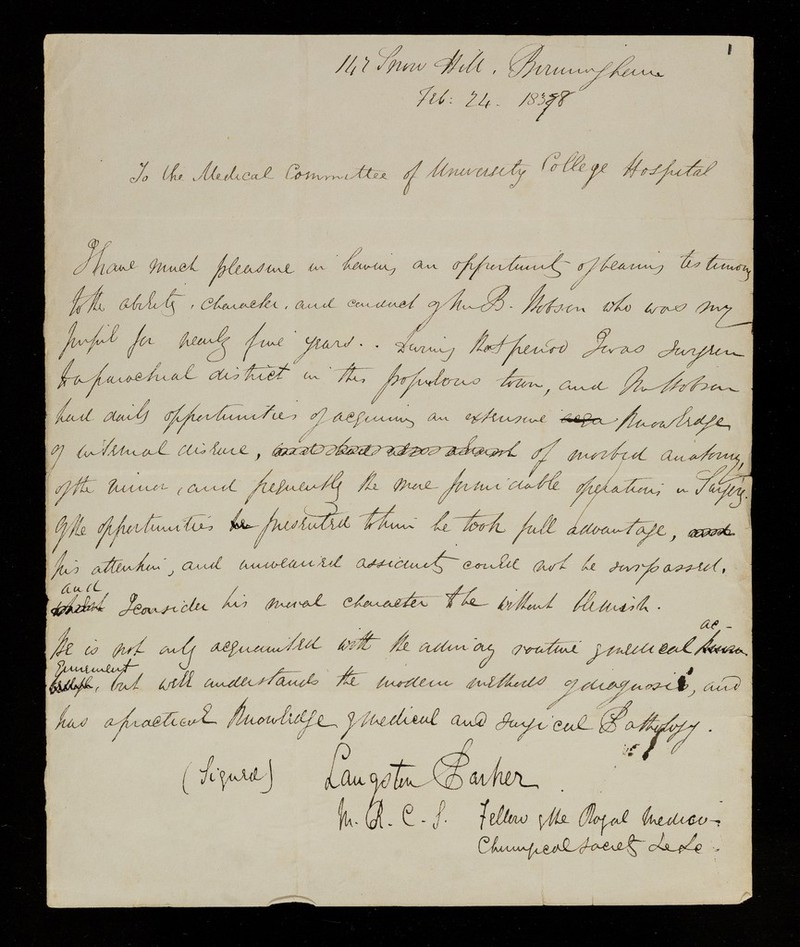 1
147 Snow Hill. Birmingham
Feb: 24. 1838
To the Medical Committee of University College Hospital
I have much pleasure in having an opportunity of bearing testimony
to the ability, character, and conduct of Mr B. Hobson who was my
pupil for nearly five years. . During that period I was Surgeon
to a parochial district in this populous town, and Mr Hobson
had daily opportunities of acquiring an extensive knowledge
of internal disease, of morbid anatomy,
of the minor, and frequently the more formidable operations in Surgery.
Of the opportunities presented to him he took full advantage,
his attention, and unwearied assiduity could not be surpassed.
and
I consider his moral character to be without blemish.
ac-
He is not only acquainted with the ordinary routine of medical
quirement, but well understands the modern methods of diagnosis, and
has a practical knowledge of medical and surgical Pathology.
(Signed) Langston Parker
M. R. C. S. Fellow of the Royal Medico-
Chirurgical Society &c &c